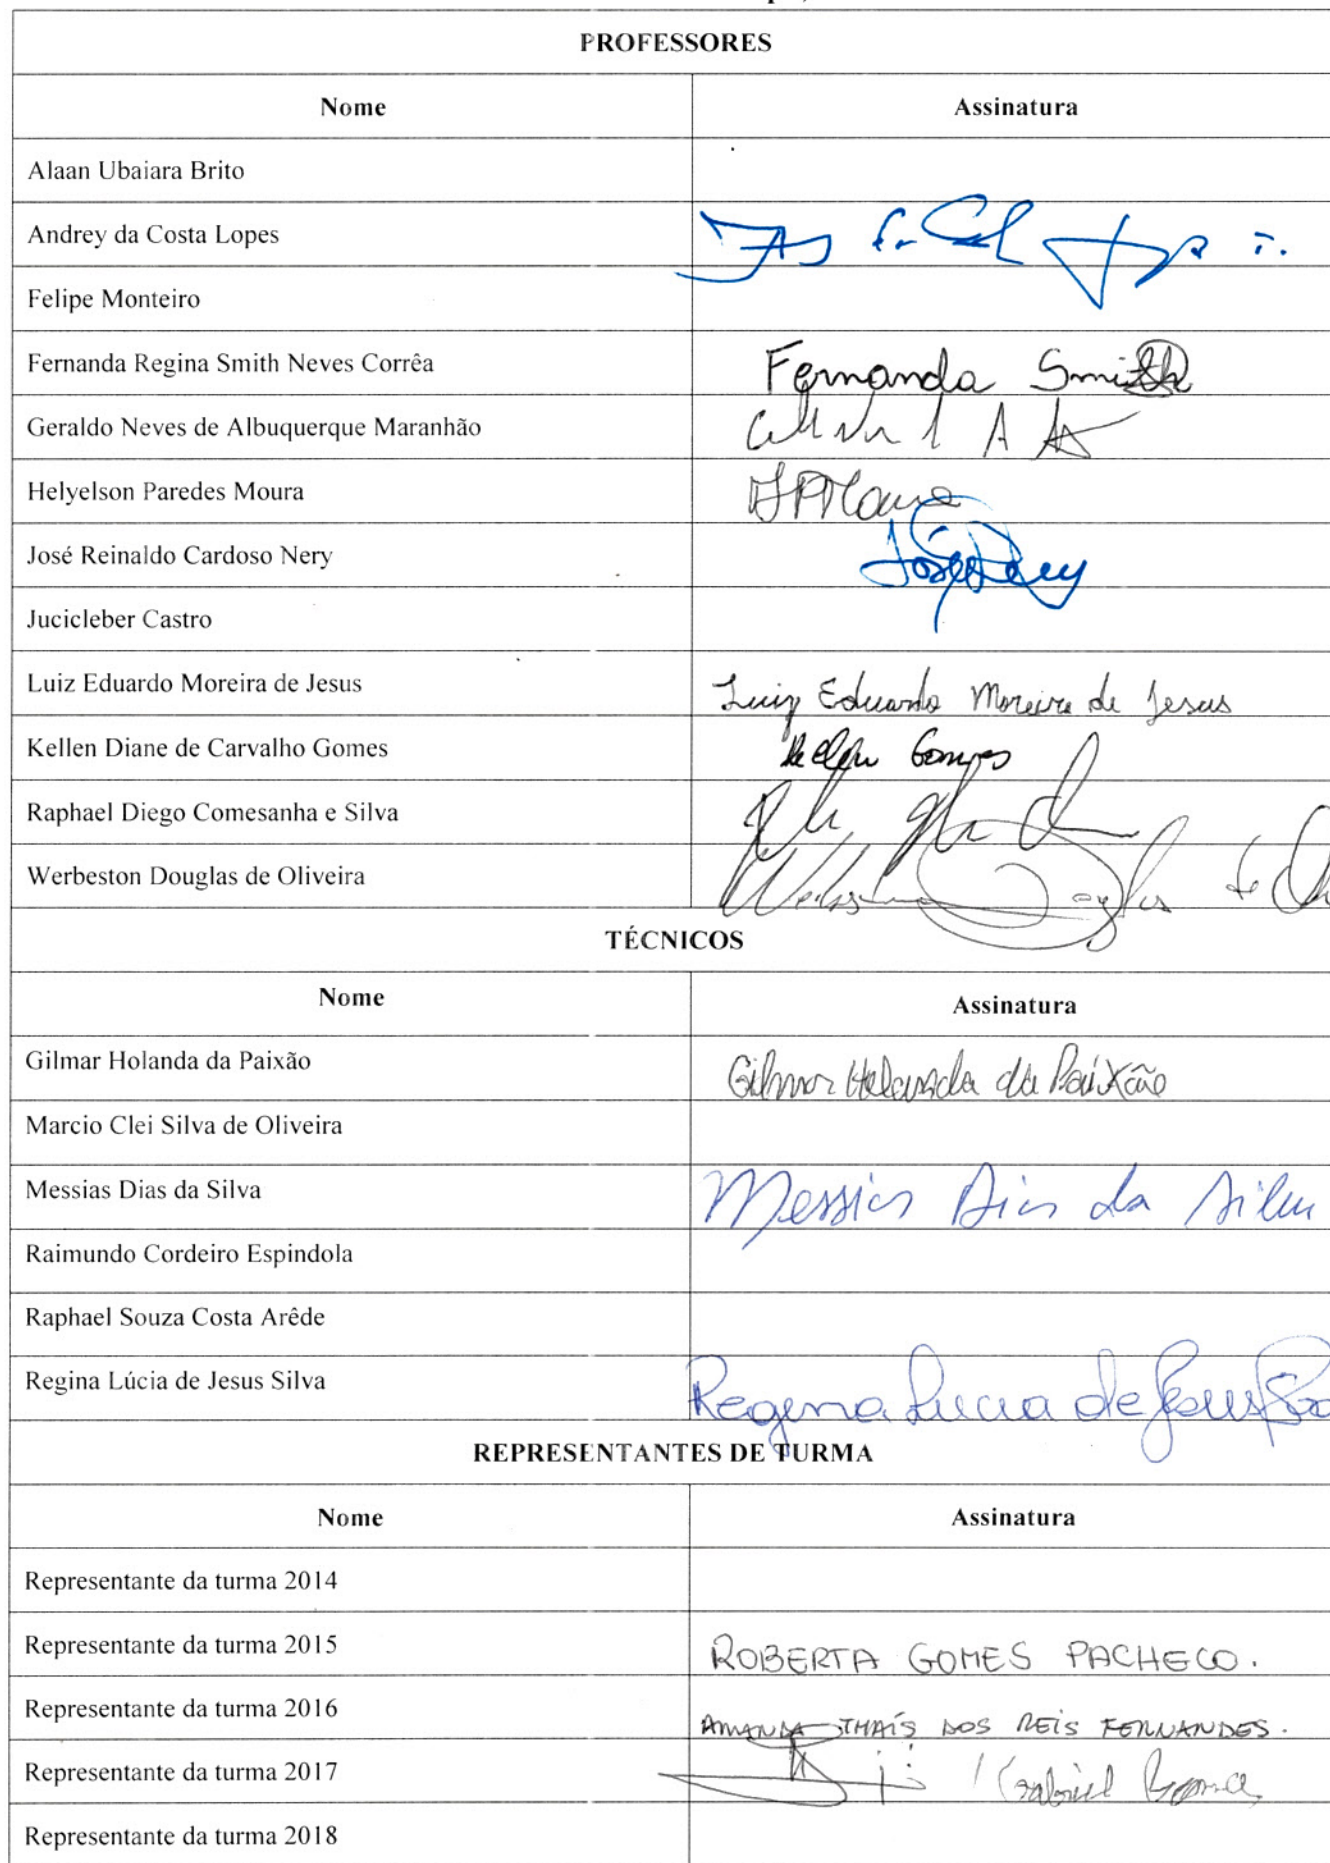 PROFESSORES
Nome Assinatura
Alaan Ubaiara Brito
Andrey da Costa Lopes
Felipe Monteiro
Fernanda Regina Smith Neves Corrêa Fernanda Smith
Geraldo Neves de Albuquerque Maranhão
Helyelson Paredes Moura
José Reinaldo Cardoso Nery José Nery
Jucicleber Castro
Luiz Eduardo Moreira de Jesus Luiz Eduardo Moreira de Jesus
Kellen Diane de Carvalho Gomes Kellen Gomes
Raphael Diego Comesanha e Silva
Werbeston Douglas de Oliveira
TÉCNICOS
Nome Assinatura
Gilmar Holanda da Paixão Gilmar Holanda da Paixão
Marcio Clei Silva de Oliveira
Messias Dias da Silva Messias Dias da Silva
Raimundo Cordeiro Espindola
Raphael Souza Costa Arêde
Regina Lúcia de Jesus Silva Regina Lucia de Jesus
REPRESENTANTES DE TURMA
Nome Assinatura
Representante da turma 2014
Representante da turma 2015 ROBERTA GOMES PACHECO.
Representante da turma 2016 AMANDA THAÍS DOS REIS FERNANDES.
Representante da turma 2017 Gabriel
Representante da turma 2018